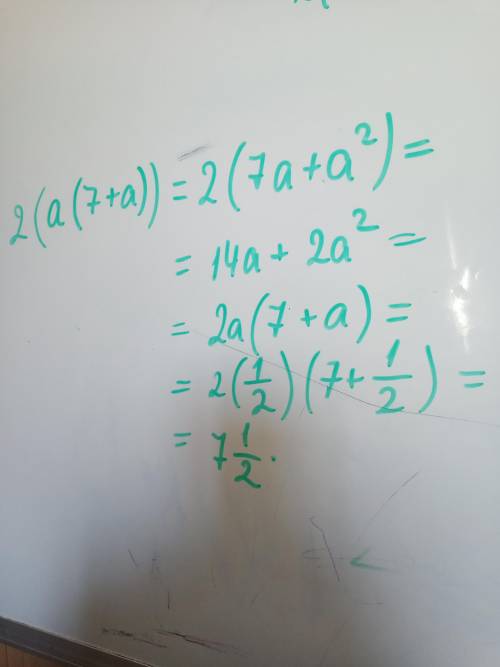 2(a(7+a)) = 2(7a+a²) =
= 14a + 2a² =
= 2a(7+a) =
= 2(1/2)(7+1/2) =
= 7 1/2.